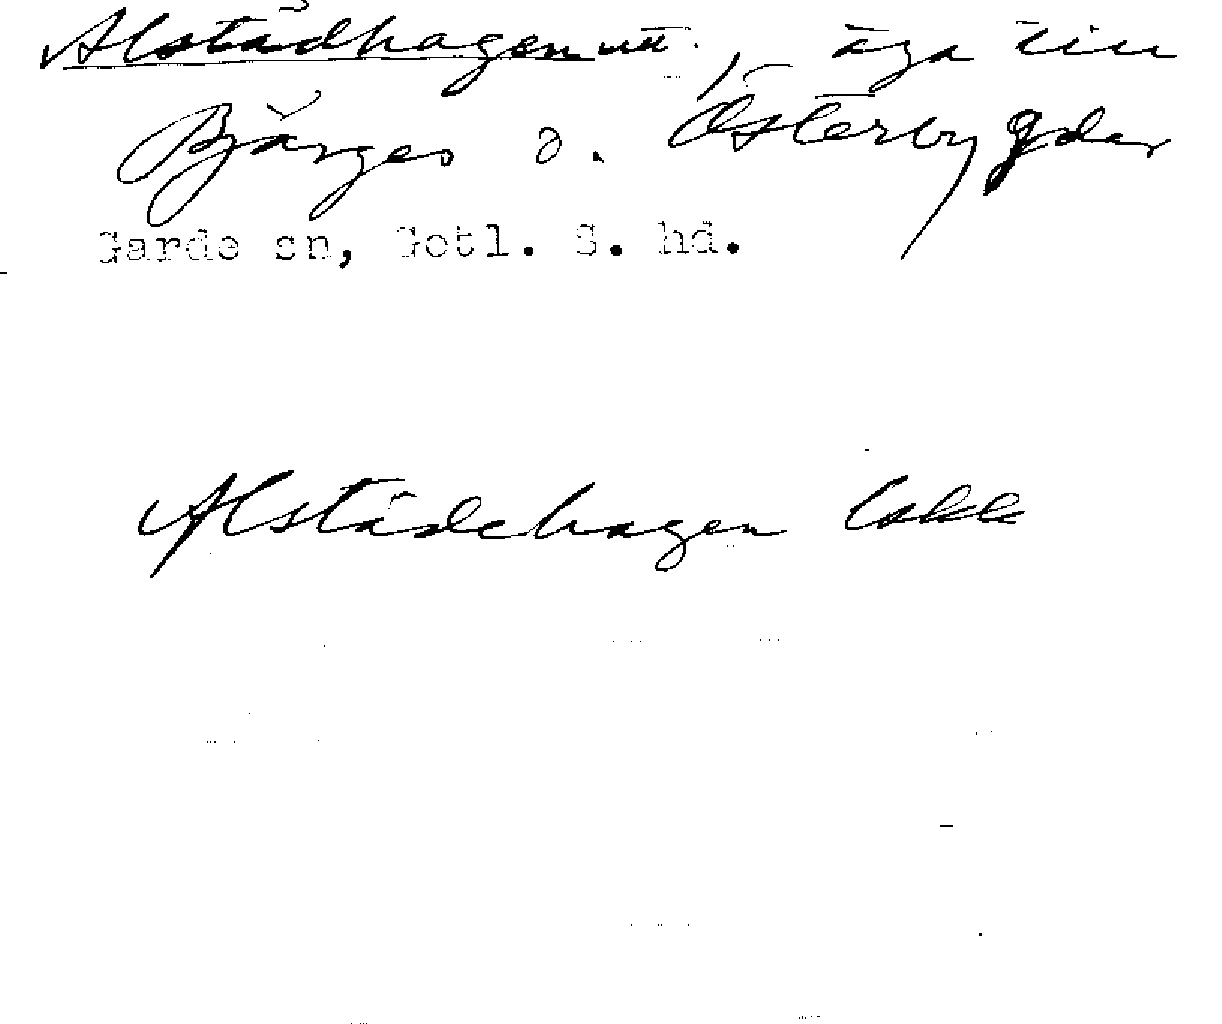 Alstädhagen, äga till
Bjärges o. Österbygder
Garde sn, Gotl. S. hd.
Alstädehagen